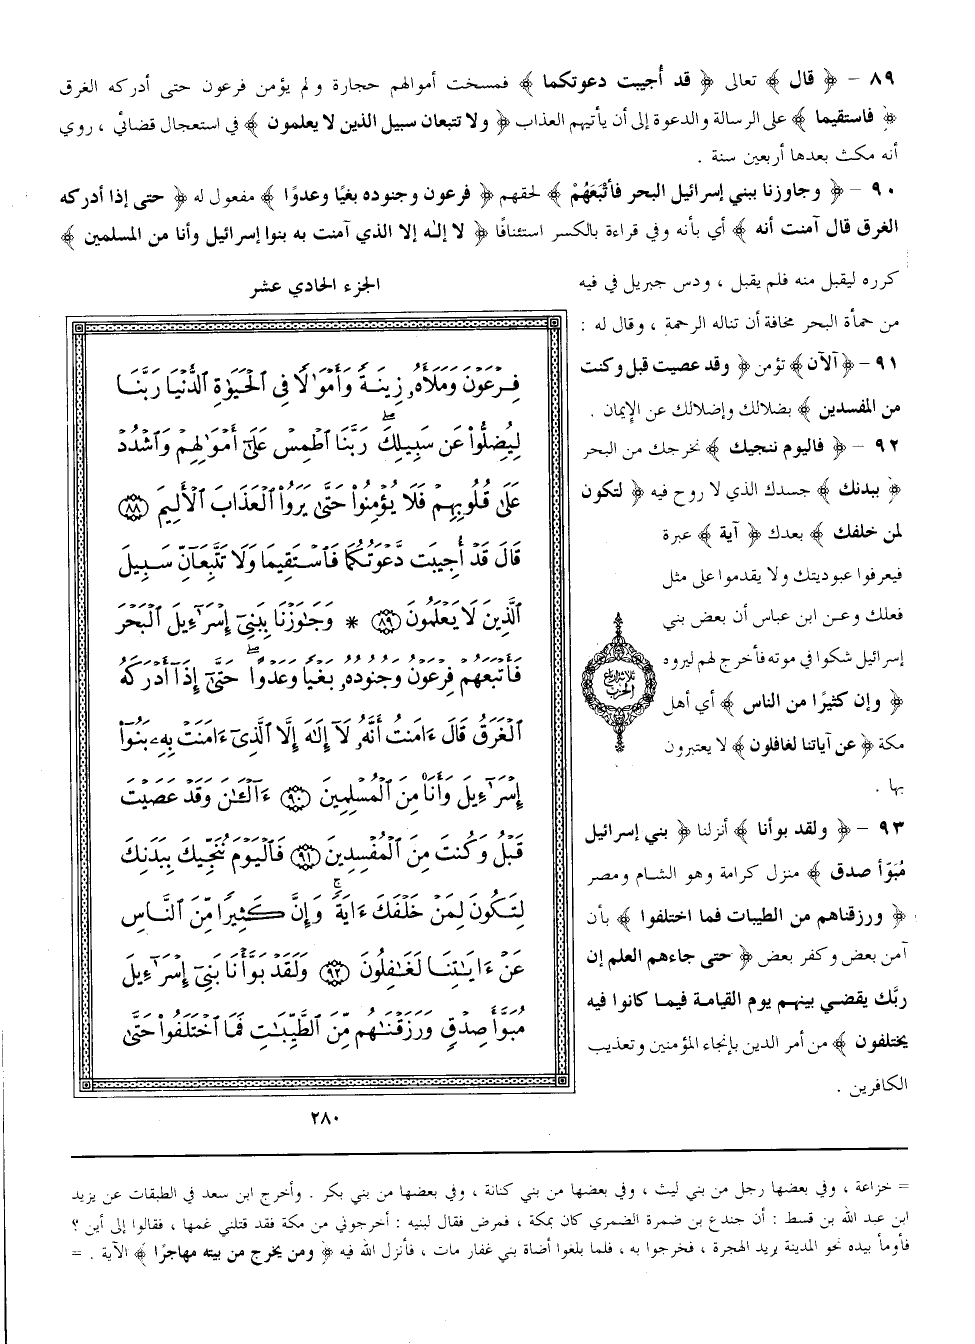 ٨٩ - ﴿ قال ﴾ تعالى ﴿ قد أُجيبت دعوتكما ﴾ فمسخت أموالهم حجارة ولم يؤمن فرعون حتى أدركه الغرق
﴿ فاستقيما ﴾ على الرسالة والدعوة إلى أن يأتيهم العذاب ﴿ ولا تتبعان سبيل الذين لا يعلمون ﴾ في استعجال قضائي ، روي
أنه مكث بعدها أربعين سنة .
٩٠ - ﴿ وجاوزنا ببني إسرائيل البحر فأتْبَعَهُمْ ﴾ لحقهم ﴿ فرعون وجنوده بغيًا وعدوًا ﴾ مفعول له ﴿ حتى إذا أدركه
الغرق قال آمنت أنه ﴾ أي بأنه وفي قراءة بالكسر استئنافًا ﴿ لا إلـٰه إلا الذي آمنت به بنوا إسرائيل وأنا من المسلمين ﴾
كرره ليقبل منه فلم يقبل ، ودس جبريل في فيه
من حمأة البحر مخافة أن تناله الرحمة ، وقال له :
٩١ - ﴿ آلآن ﴾ تؤمن ﴿ وقد عصيت قبل وكنت
من المفسدين ﴾ بضلالك وإضلالك عن الإيمان .
٩٢ - ﴿ فاليوم ننجيك ﴾ نخرجك من البحر
﴿ ببدنك ﴾ جسدك الذي لا روح فيه ﴿ لتكون
لمن خلفك ﴾ بعدك ﴿ آية ﴾ عبرة
فيعرفوا عبوديتك ولا يقدموا على مثل
فعلك وعن ابن عباس أن بعض بني
إسرائيل شكوا في موته فأخرج لهم ليروه
﴿ وإن كثيرًا من الناس ﴾ أي أهل
مكة ﴿ عن آياتنا لغافلون ﴾ لا يعتبرون
بها .
٩٣ - ﴿ ولقد بوأنا ﴾ أنزلنا ﴿ بني إسرائيل
مُبَوّأ صدق ﴾ منزل كرامة وهو الشام ومصر
﴿ ورزقناهم من الطيبات فما اختلفوا ﴾ بأن
آمن بعض وكفر بعض ﴿ حتى جاءهم العلم إن
ربَّك يقضي بينهم يوم القيامة فيما كانوا فيه
يختلفون ﴾ من أمر الدين بإنجاء المؤمنين وتعذيب
الكافرين .
الجزء الحادي عشر
فِرْعَوْنَ وَمَلَأَهُۥ زِينَةً وَأَمْوَٰلًا فِى ٱلْحَيَوٰةِ ٱلدُّنْيَا رَبَّنَا
لِيُضِلُّوا۟ عَن سَبِيلِكَ ۖ رَبَّنَا ٱطْمِسْ عَلَىٰٓ أَمْوَٰلِهِمْ وَٱشْدُدْ
عَلَىٰ قُلُوبِهِمْ فَلَا يُؤْمِنُوا۟ حَتَّىٰ يَرَوُا۟ ٱلْعَذَابَ ٱلْأَلِيمَ ﴿٨٨﴾
قَالَ قَدْ أُجِيبَت دَّعْوَتُكُمَا فَٱسْتَقِيمَا وَلَا تَتَّبِعَآنِّ سَبِيلَ
ٱلَّذِينَ لَا يَعْلَمُونَ ﴿٨٩﴾ * وَجَٰوَزْنَا بِبَنِىٓ إِسْرَٰٓءِيلَ ٱلْبَحْرَ
فَأَتْبَعَهُمْ فِرْعَوْنُ وَجُنُودُهُۥ بَغْيًا وَعَدْوًا ۖ حَتَّىٰٓ إِذَآ أَدْرَكَهُ
ٱلْغَرَقُ قَالَ ءَامَنتُ أَنَّهُۥ لَآ إِلَٰهَ إِلَّا ٱلَّذِىٓ ءَامَنَتْ بِهِۦ بَنُوٓا۟
إِسْرَٰٓءِيلَ وَأَنَا۠ مِنَ ٱلْمُسْلِمِينَ ﴿٩٠﴾ ءَآلْـَٰٔنَ وَقَدْ عَصَيْتَ
قَبْلُ وَكُنتَ مِنَ ٱلْمُفْسِدِينَ ﴿٩١﴾ فَٱلْيَوْمَ نُنَجِّيكَ بِبَدَنِكَ
لِتَكُونَ لِمَنْ خَلْفَكَ ءَايَةً ۚ وَإِنَّ كَثِيرًا مِّنَ ٱلنَّاسِ
عَنْ ءَايَٰتِنَا لَغَٰفِلُونَ ﴿٩٢﴾ وَلَقَدْ بَوَّأْنَا بَنِىٓ إِسْرَٰٓءِيلَ
مُبَوَّأَ صِدْقٍ وَرَزَقْنَٰهُم مِّنَ ٱلطَّيِّبَٰتِ فَمَا ٱخْتَلَفُوا۟ حَتَّىٰ
ثلاثة أرباع
الحزب
٢٨٠
= خزاعة ، وفي بعضها رجل من بني ليث ، وفي بعضها من بني كنانة ، وفي بعضها من بني بكر . وأخرج ابن سعد في الطبقات عن يزيد
ابن عبد الله بن قسط : أن جندع بن ضمرة الضمري كان بمكة ، فمرض فقال لبنيه : أخرجوني من مكة فقد قتلني غمها ، فقالوا إلى أين ؟
فأومأ بيده نحو المدينة يريد الهجرة ، فخرجوا به ، فلما بلغوا أضاة بني غفار مات ، فأنزل الله فيه ﴿ ومن يخرج من بيته مهاجرًا ﴾ الآية . =